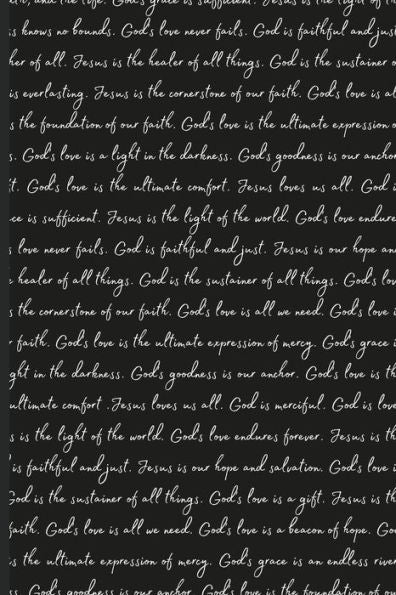 and the life. God's grace is sufficient. Jesus is the light of t
s knows no bounds. God's love never fails. God is faithful and just
her of all. Jesus is the healer of all things. God is the sustainer o
is everlasting. Jesus is the cornerstone of our faith. God's love is al
s the foundation of our faith. God's love is the ultimate expression o
s. God's love is a light in the darkness. God's goodness is our anchor
t. God's love is the ultimate comfort. Jesus loves us all. God i
ce is sufficient. Jesus is the light of the world. God's love endure
s love never fails. God is faithful and just. Jesus is our hope an
healer of all things. God is the sustainer of all things. God's lov
s the cornerstone of our faith. God's love is all we need. God's love i
r faith. God's love is the ultimate expression of mercy. God's grace i
ght in the darkness. God's goodness is our anchor. God's love is th
ultimate comfort .Jesus loves us all. God is merciful. God is love
s is the light of the world. God's love endures forever. Jesus is th
is faithful and just. Jesus is our hope and salvation. God's love i
God is the sustainer of all things. God's love is a gift. Jesus is th
faith. God's love is all we need. God's love is a beacon of hope. Go
is the ultimate expression of mercy. God's grace is an endless river
ss. God's goodness is our anchor. God's love is the foundation of ou